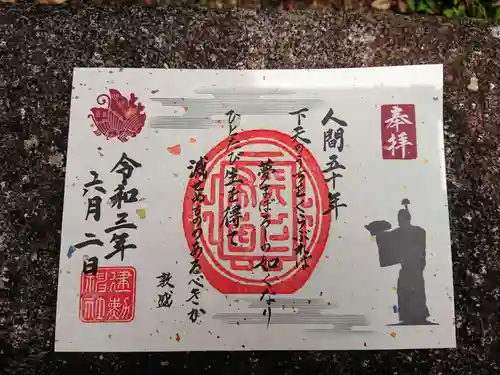 奉拝
人間五十年
下天のうちをくらぶれば
夢まぼろしの如くなり
ひとたび生を得て
滅せぬもののあるべきか
敦盛
令和三年
六月二日
建勲
神社